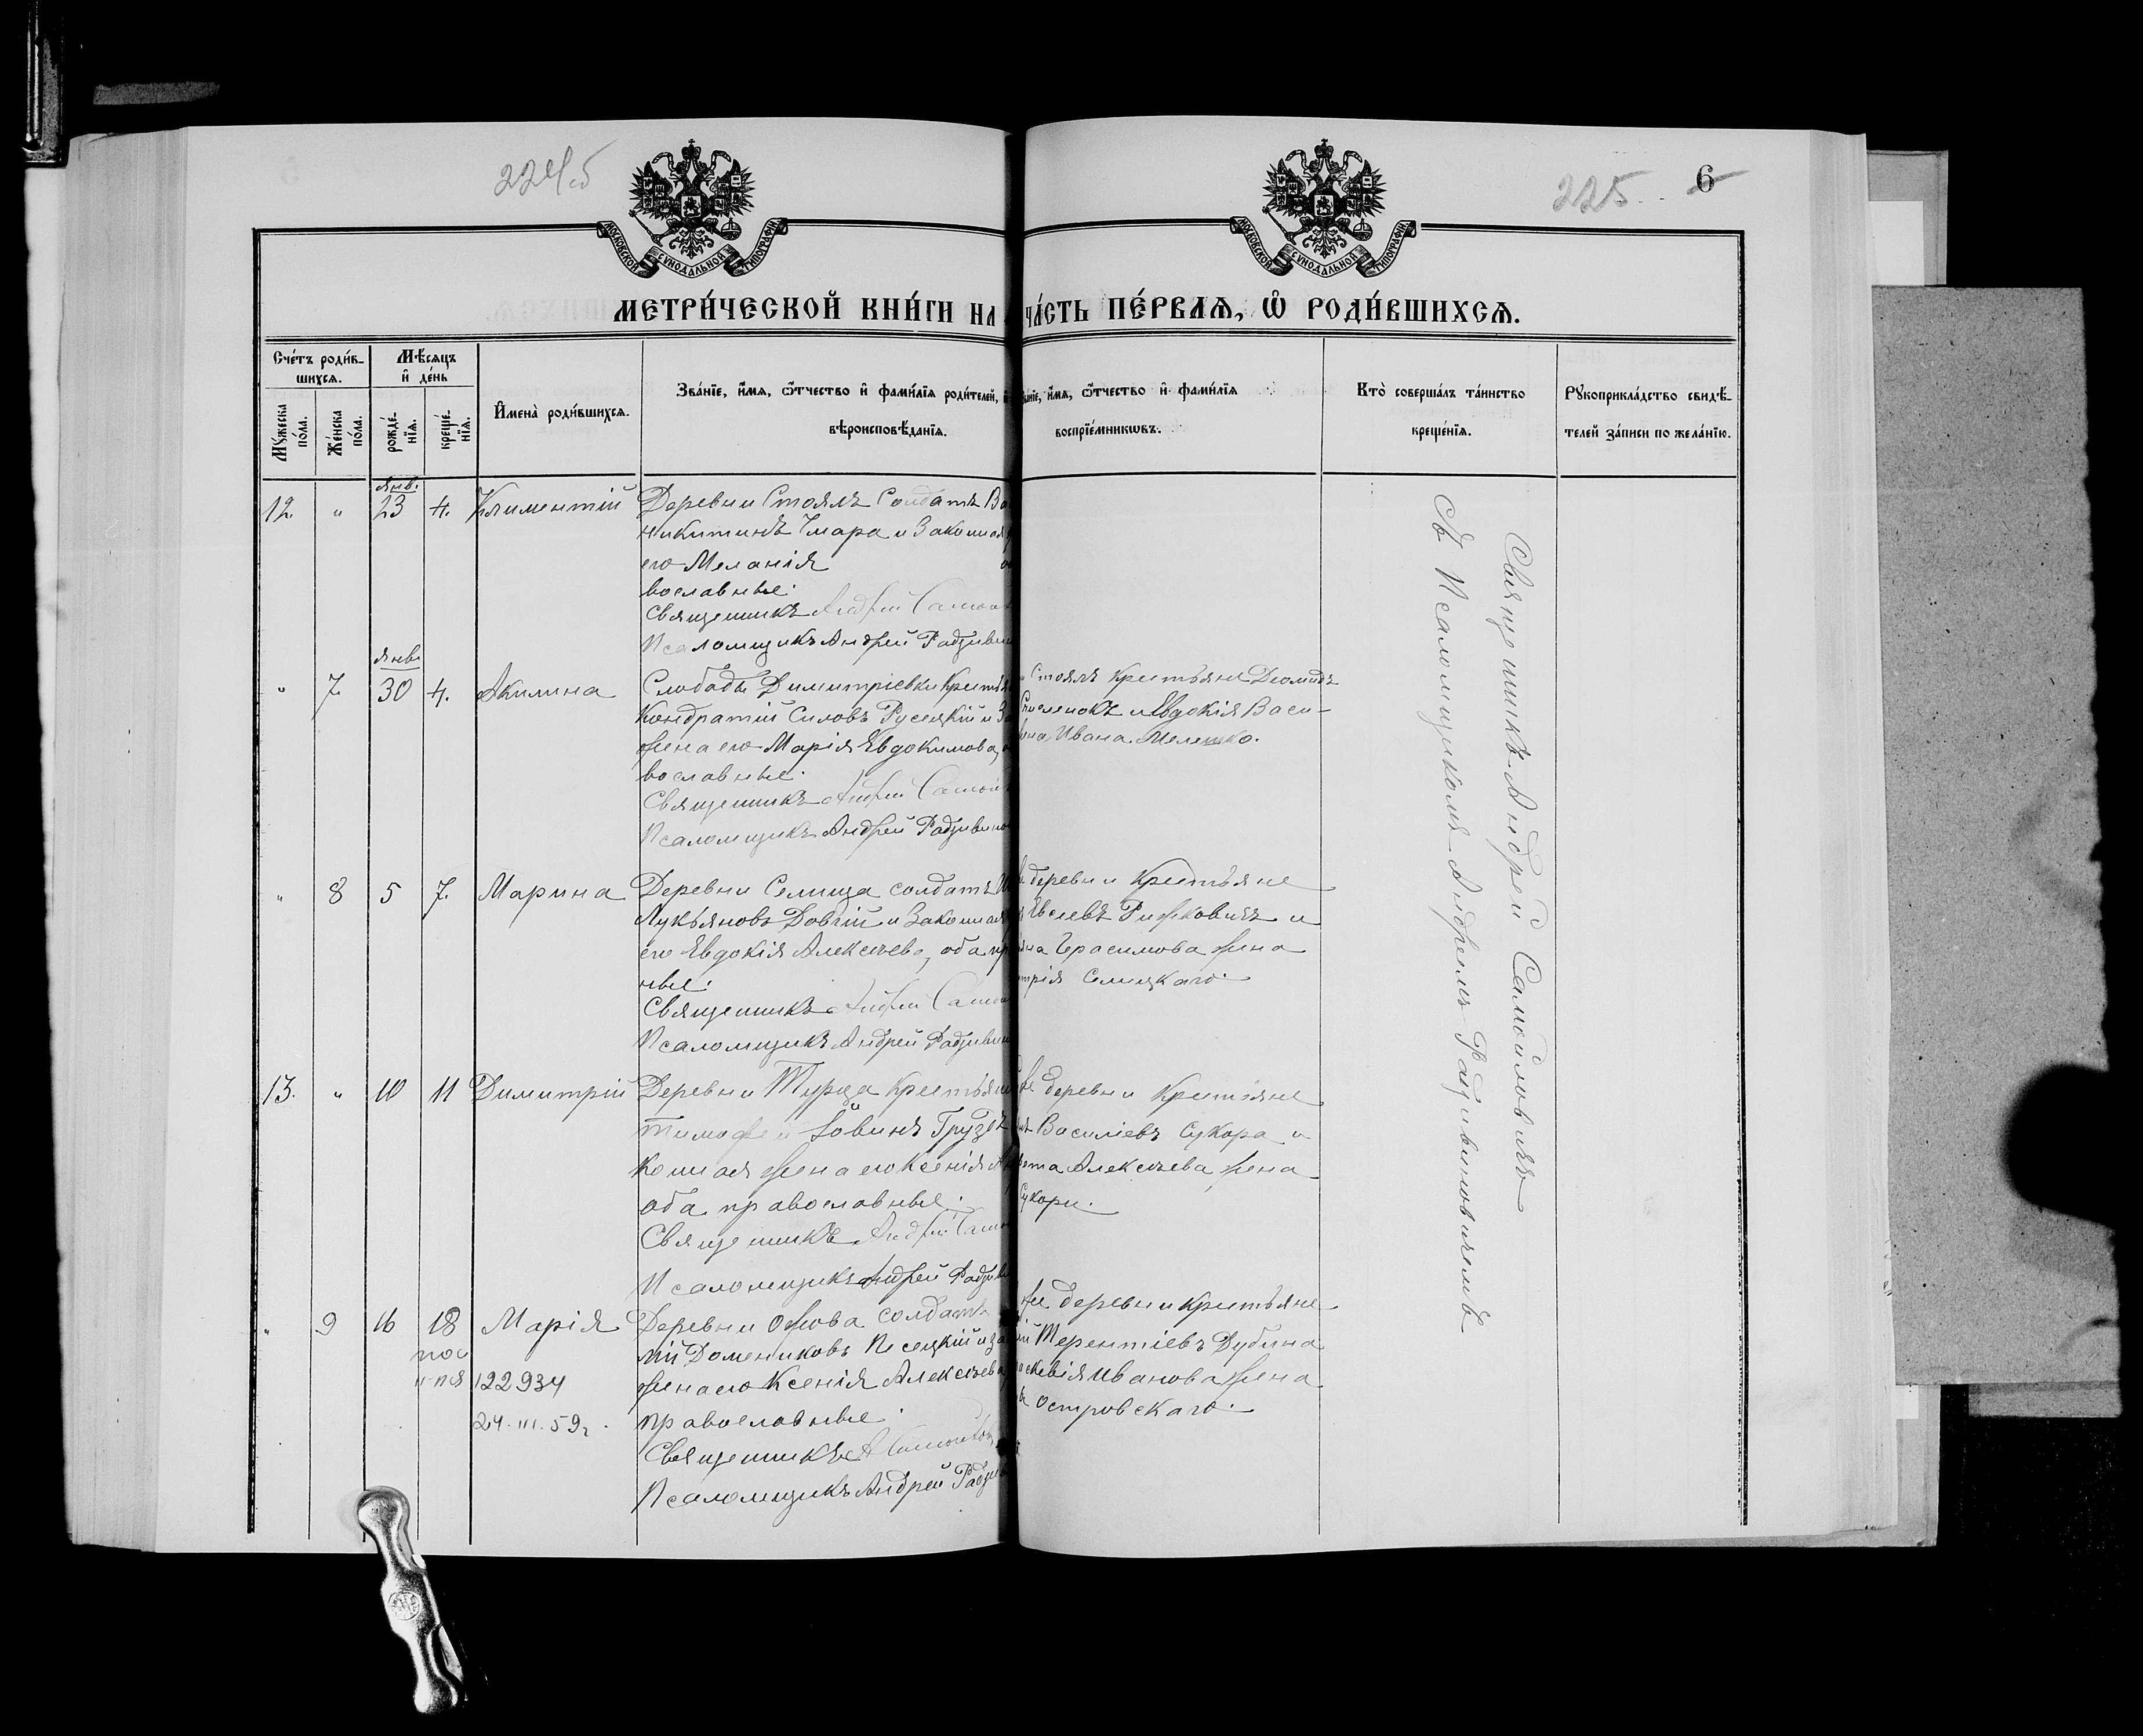 224об
225.
6
МОСКОВСКОЙ СѴНОДАЛЬНОЙ ТИПОГРАФІИ
МОСКОВСКОЙ СѴНОДАЛЬНОЙ ТИПОГРАФІИ
МЕТРИ́ЧЕСКОЙ КНИ́ГИ НА
ЧА́СТЬ ПЕ́РВАѦ, Ѡ҃ РОДИ́ВШИХСѦ.
Сче́тъ роди́в-
шихсѧ.
Мꙋ́жеска по́ла.
Же́нска по́ла.
Мѣ́сѧцъ
и҆ де́нь
рожде́-
нїѧ.
креще́-
нїѧ.
И҆мена̀ роди́вшихсѧ.
Зва́нїе, и҆́мѧ, ѻ҆́тчество и҆ фами́лїѧ роди́телей,
вѣроисповѣ́данїѧ.
и҆́мѧ, ѻ҆́тчество и҆ фами́лїѧ
воспрїе́мникѡвъ.
Кто̀ соверша́лъ та́инство
креще́нїѧ.
Рꙋкоприкла́дство свидѣ́-
телей за́писи по жела́нїю.
12. " янв. 23 4. Климентій
Деревни Стоялъ Солдатъ Ва
Никитинъ Чмара и Законная
его Меланія
вославные.
Священникъ Андрей Самои
Псаломщикъ Андрей Радзиви
" 7. янв. 30 4. Акилина
Слободы Димитріевки Крестья
Кондратій Силовъ Русецкій и За
жена его Марія Евдокимова, о
вославные.
Священникъ Андрей Самои
Псаломщикъ Андрей Радзивино
Стоялъ Крестьяне Диомидъ
и Евдокія Васи-
Ивана Мелешко.
" 8 5 7. Марина
Деревни Селища солдатъ
Лукьяновъ Довгій и Законная
его Евдокія Алексѣева, оба пр
ные.
Священникъ Андрей Самои
Псаломщикъ Андрей Радзиви
деревни Крестьяне
Евсеевъ Рижковичъ и
Герасимова жена
трія Селицкаго.
13. " 10 11 Димитрій
Деревни Турца Крестьян
Тимофей Іовинъ Груздъ
конная жена его Ксенія
оба православные.
Священникъ Андрей Само
Псаломщикъ Андрей Радзив
же деревни Крестьяне
Василіевъ Сукора и
Алексѣева жена
Сукори.
" 9 16 18 Марія
122934
24.III.59г.
Деревни Ожова солдатъ
лій Домениковъ Песецкій и за
жена его Ксенія Алексѣева
православные.
Священникъ А Самойло
Псаломщикъ Андрей Радзи
же деревни Крестьяне
Терентіевъ Дубина
скевія Иванова жена
Островскаго.
Священникъ Андрей Самойловичъ
Съ Псаломщикомъ Андреемъ Радзивиновичемъ